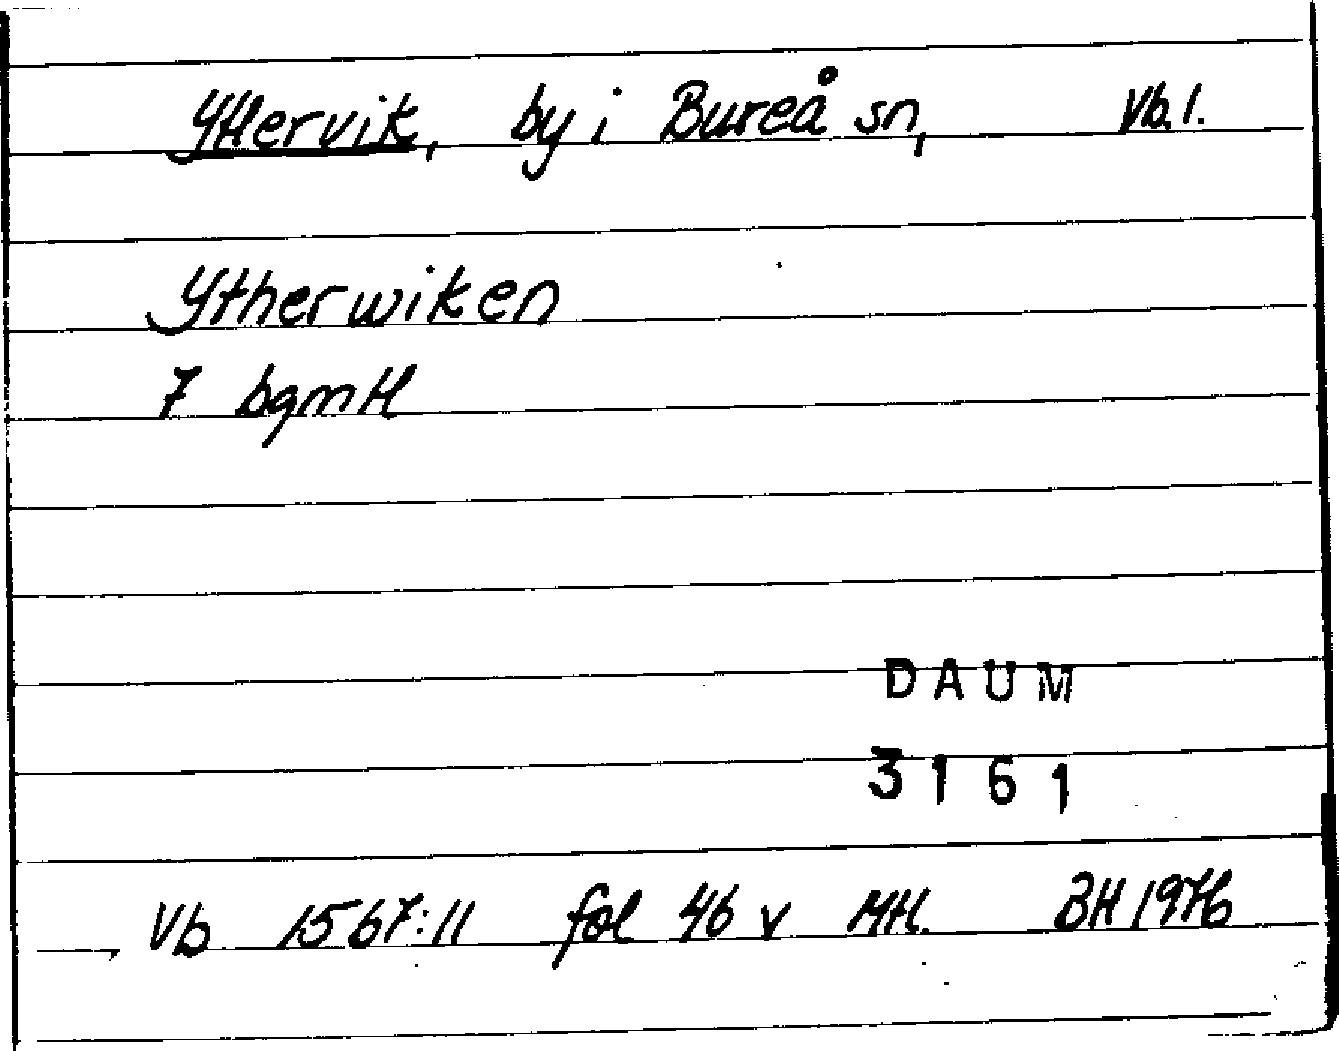 Yttervik, by i Bureå sn, Vb. l.
Ytherwiken
7 bgmtl
DAUM
3161
Vb 1567:11 fol 46 v MH. BH 1976